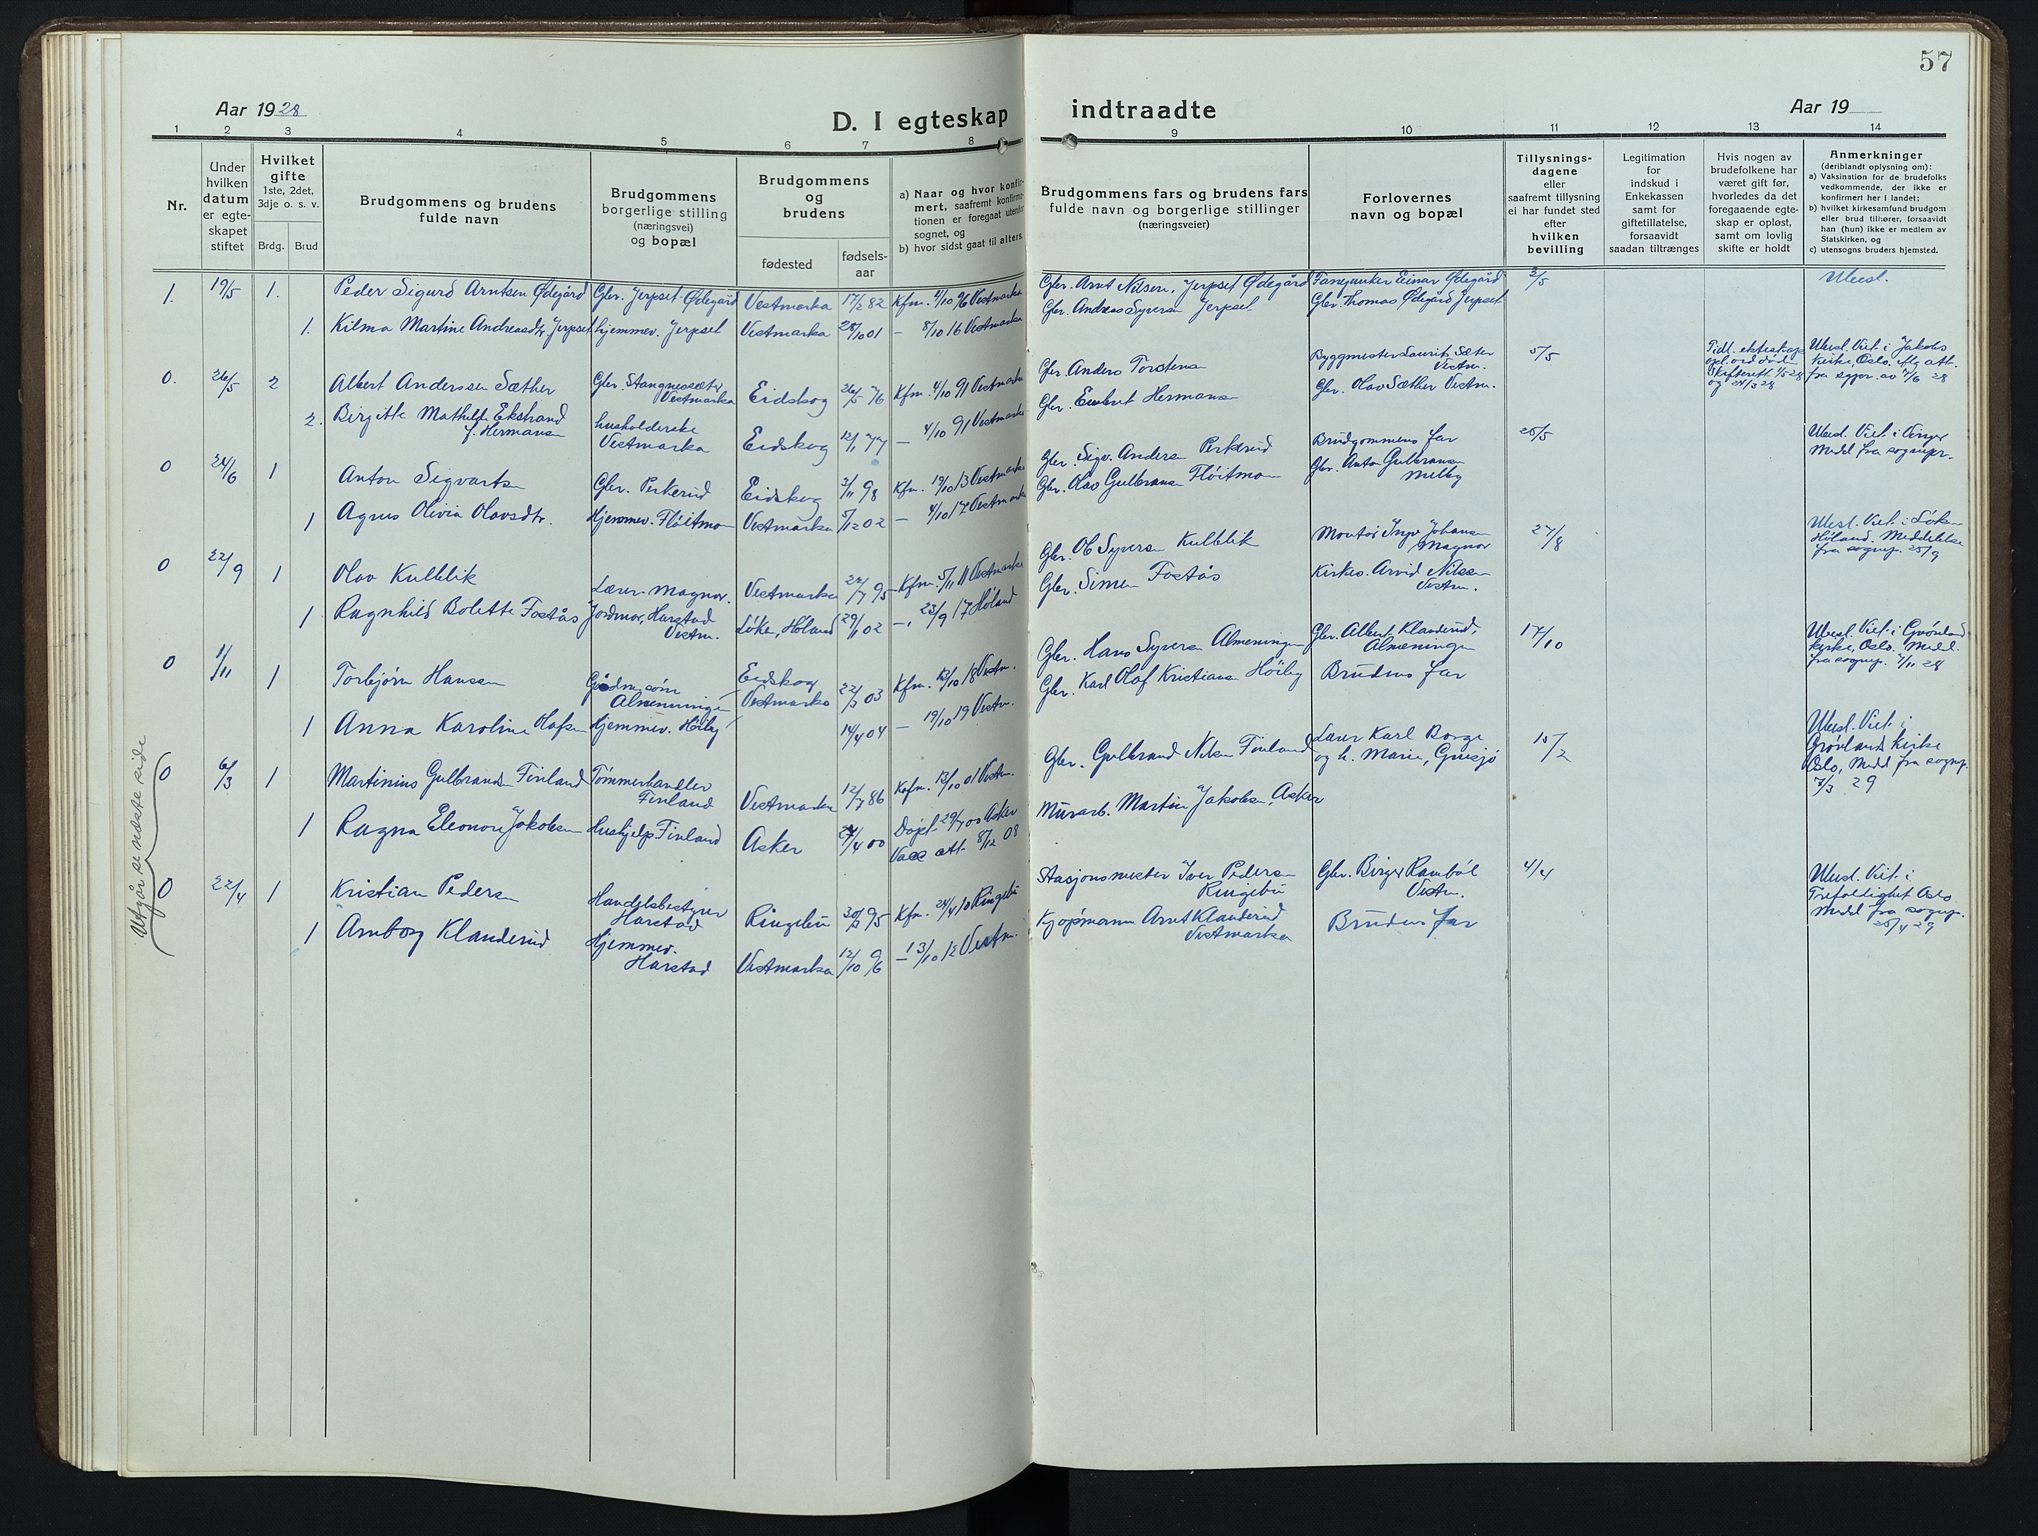 57
Aar 1928
D. I egteskap indtraadte
Aar 19
1 2 3 4 5 6 7 8 9 10 11 12 13 14
Nr.
Under
hvilken
datum
er egte-
skapet
stiftet
Hvilket
gifte
1ste, 2det,
3dje o. s. v.
Brdg. Brud
Brudgommens og brudens
fulde navn
Brudgommens
borgerlige stilling
(næringsvei)
og bopæl
Brudgommens
og
brudens
fødested
fødsels-
aar
a) Naar og hvor konfir-
mert, saafremt konfirma-
tionen er foregaat utenfor
sognet, og
b) hvor sidst gaat til alters.
Brudgommens fars og brudens fars
fulde navn og borgerlige stillinger
(næringsveier)
Forlovernes
navn og bopæl
Tillysnings-
dagene
eller
saafremt tillysning
ei har fundet sted
efter
hvilken
bevilling
Legitimation
for
indskud i
Enkekassen
samt for
giftetillatelse,
forsaavidt
saadan tiltrænges
Hvis nogen av
brudefolkene har
været gift før,
hvorledes da det
foregaaende egte-
skap er opløst,
samt om lovlig
skifte er holdt
Anmerkninger
(deriblandt oplysning om):
a) Vaksination for de brudefolks
vedkommende, der ikke er
konfirmert her i landet;
b) hvilket kirkesamfund brudgom
eller brud tilhører, forsaavidt
han (hun) ikke er medlem av
Statskirken, og
c) utensogns bruders hjemsted.
1. 19/5 1. Peder Sigurd Arntsen Ødegård Gbr. Jerpset Ødegård Vestmarka 17/2 82 Kfm. 4/10 96 Vestmarka Gbr. Arnt Nilsen, Jerpset Ødegård Einar Ødegård 3/5
Gbr. Andreas Syversen Jerpset Gbr. Thomas Ødegård Jerpset
1. Kilma Martine Andreasdtr Jerpset hjemmev. Jerpset Vestmarka 28/10 01 — 8/10 16 Vestmarka
0. 26/5 2 Albert Anderssen Sæther Gbr. Stangnessæter Vestmarka Eidskog 26/5 76 Kfm. 4/10 91 Vestmarka Gbr. Anders Torstens Byggmester Laurits Sæter Vestm. 5/5
Gbr. Hermansen Gbr. Olav Sæther Vestm.
Kirke, Oslo.
2. Birgitte Mathilde Ekstrand f. Hermansen husholderske Vestmarka Eidskog 12/11 77 — 4/10 91 Vestmarka
0 24/6 1 Anton Sigvartsen Gbr. Perkerud Eidskog 3/11 98 Kfm. 19/10 13 Vestmarka Gbr. Sigv. Andersen Perkerud Brudgommens far 25/5
Gbr. Olav Gulbransen Fløitmoen Gbr. Anton Gulbransen Melby
Medd. fra sognepr.
1 Agnes Olivia Olavsdtr. Hjemmev. Fløitmoen Vestmarka 5/12 02 — 4/10 17 Vestmarka
0 22/9 1 Olav Kulblik Lærer. Magnor. Vestmarka 24/7 95 Kfm. 5/11 11 Vestmarka Gbr. Ol. Syversen Kulblik Montør Inge Johansen Magnor 27/8
Gbr. Simen Fostås Kirkes. Arvid Nilssen Vestm.
Høland. Meddelelse
fra sognep. 25/9
1 Ragnhild Bolette Fostås Jordmor, Harstad Vestm. Løken, Høland 29/11 02 —. 23/9 17 Høland
0 1/11 1 Torbjørn Hanssen Gårdm.søn Almenningen Eidskog Vestmarka 22/3 03 Kfm. 13/10 18 Vestm. Gbr. Hans Syversen Almenningen Gbr. Albert Klanderud, Almenningen 17/10
Gbr. Karl Olaf Kristiansen Høiby Brudens far
Viet i Grønland
kirke, Oslo. Medd.
fra sognep. 7/11 28
1 Anna Karoline Olafsen Hjemmev. Høiby 14/4 04 — 19/10 19 Vestm.
Utgår se næste side
0 6/3 1 Martinius Gulbrandsen Finland Tømmerhandler Finland Vestmarka 12/7 86 Konf. 13/10 01 Vestm. Gbr. Gulbrand Nilsen Finland Lærer Karl Borge og h. Marie, Gnisjø 10/2
Viet i
Grønland Kirke
Oslo, Medd fra sognep.
7/3 29
1 Ragna Eleonore Jakobsen Hushjelp Finland Asker 27/4 00 Døpt 29/7 00 Asker Vacc att 8/12 08 Murarb. Martin Jakobsen, Asker
0 22/4 1 Kristian Pedersen Handelsbestyrer Harstad Ringebu 30/8 95 Kfm. 24/4 10 Ringebu Stasjonsmester Iver Pedersen Ringebu Gbr. Birger Rambøl Vestm. 4/4
Viet i
Trefoldighet Oslo
Medd fra sognep.
25/4 29
1 Arnborg Klanderud Hjemmev. Harstad Vestmarka 12/10 96 — 13/10 12 Vestm. Kjøpmann Arnt Klanderud Vestmarka Brudens far